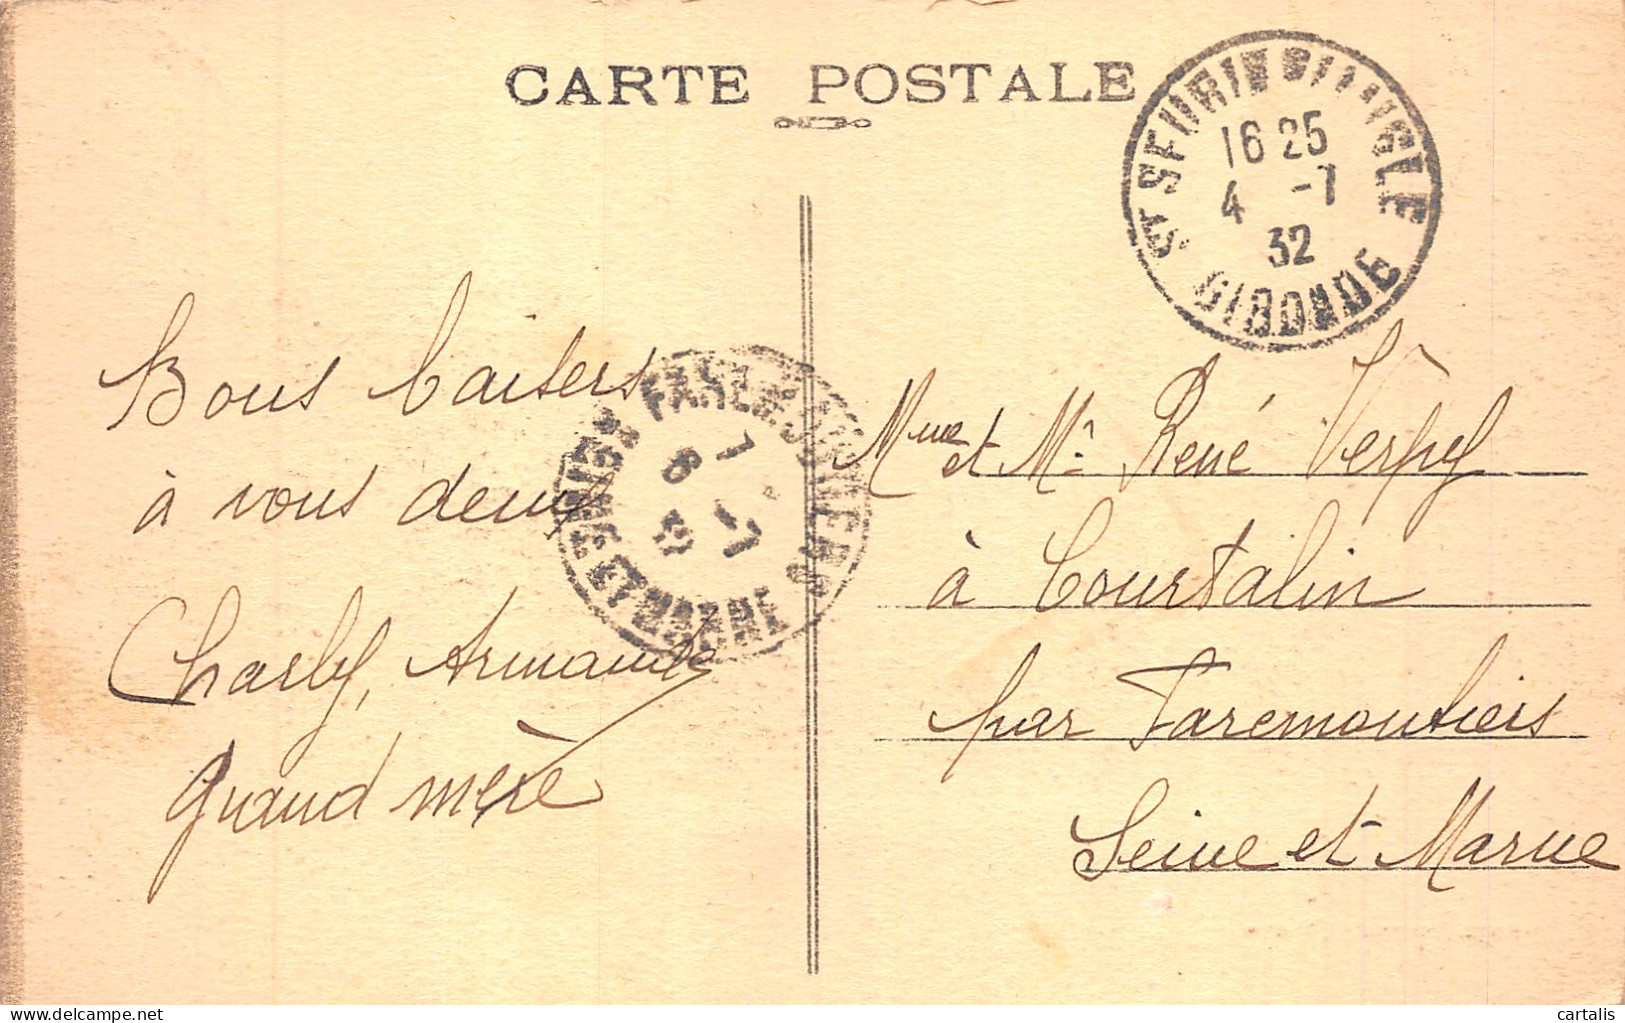 CARTE POSTALE
ST SEURIN S/L'ISLE
16 25
4 -7
32
GIRONDE
Bons baisers
à vous deux
Charly, Armande
grand mère
FAREMOUTIERS
SEINE ET MARNE
Mme et Mr René Verpy
à Courtalin
par Faremoutiers
Seine et Marne
delcampe.net
cartalis